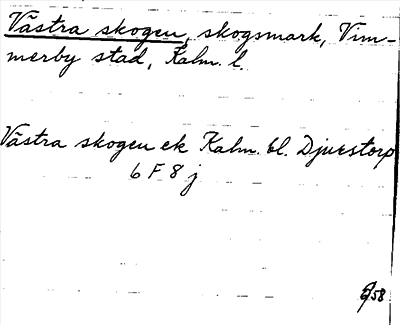 Västra skogen, skogsmark, Vim-
merby stad, Kalm. l.
Västra skogen ek Kalm. bl. Djurstorp
6 F 8 j
58